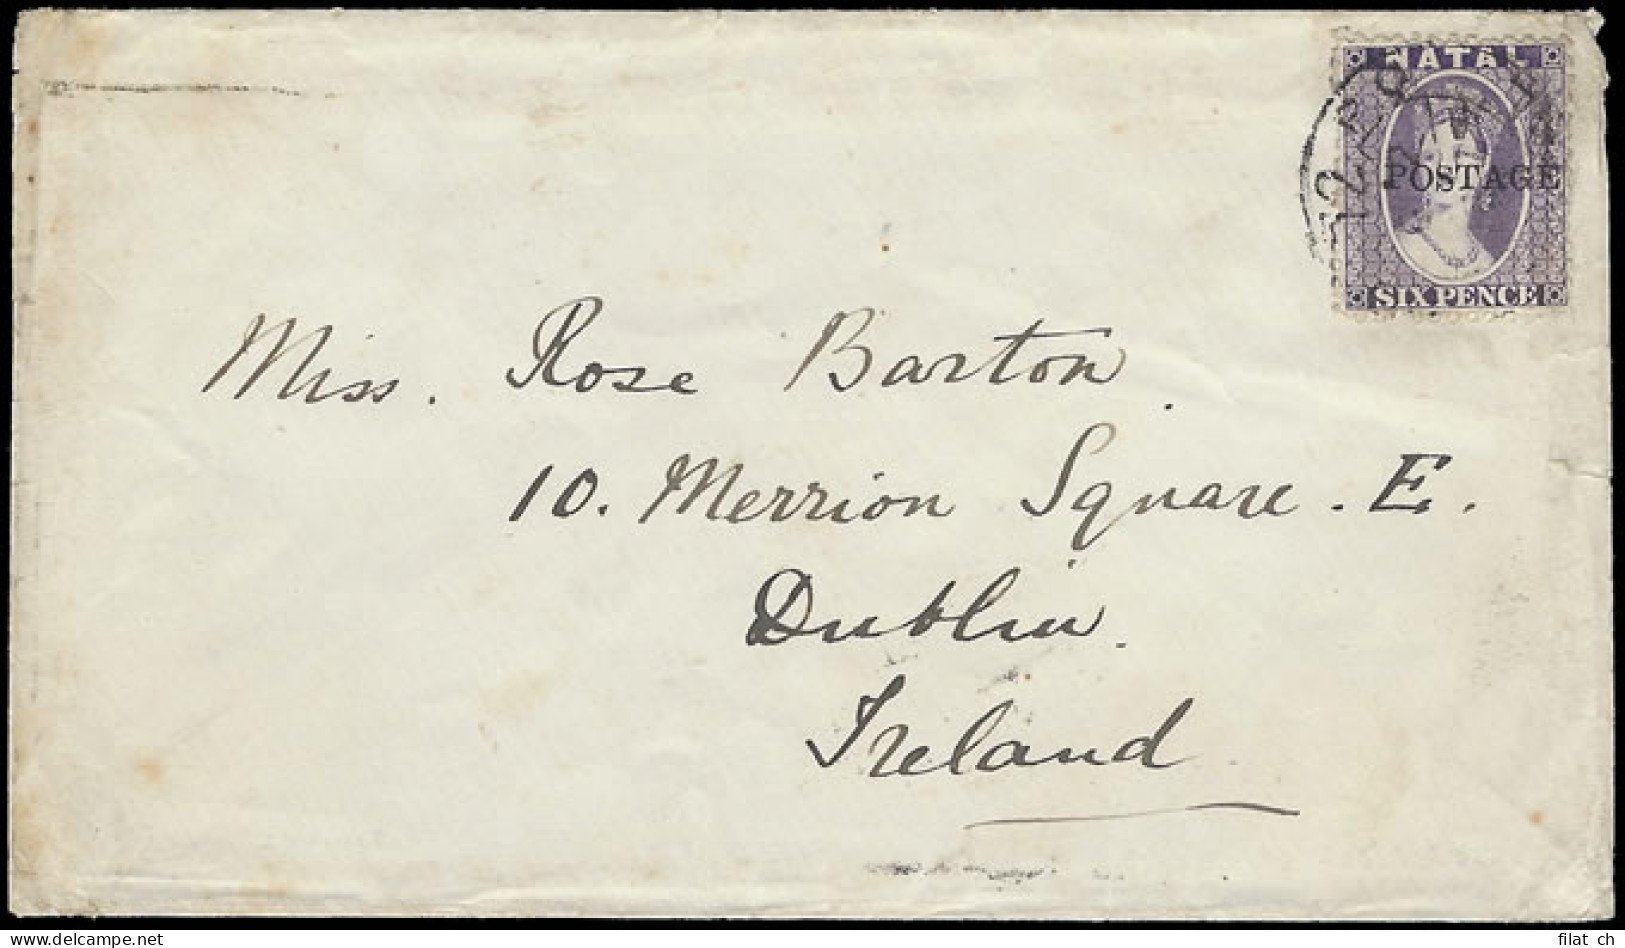 NATAL
POSTAGE
SIX PENCE
Miss. Rose Barton.
10. Merrion Square. E.
Dublin.
Ireland
filat ch